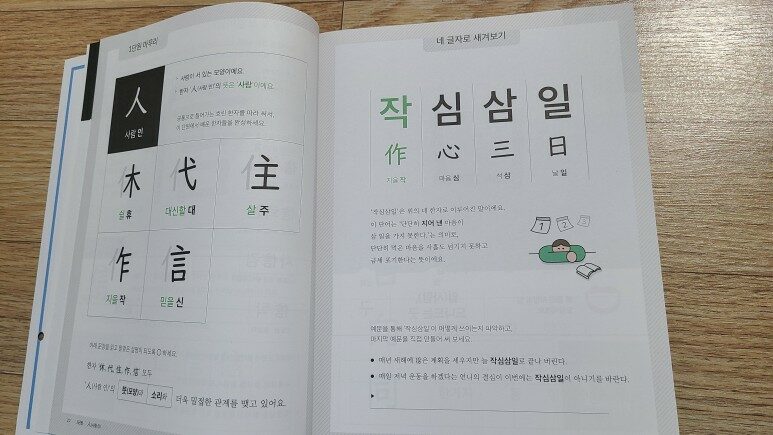 1단원 마무리
人
사람 인
· 사람이 서 있는 모양이에요.
· 한자 '人(사람 인)'의 뜻은 '사람'이에요.
공통으로 들어가는 흐린 한자를 따라 써서,
이 단원에서 배운 한자들을 완성하세요.
休 代 住
쉴 휴 대신할 대 살 주
作 信
지을 작 믿을 신
아래 문장을 읽고 알맞은 설명이 되도록 ○ 하세요.
한자 休, 代, 住, 作, 信 모두
'人(사람 인)'의 뜻(모양)과 소리와 더욱 밀접한 관계를 맺고 있어요.
네 글자로 새겨보기
작 심 삼 일
作 心 三 日
지을 작 마음 심 석 삼 날 일
'작심삼일'은 위의 네 한자로 이루어진 말이에요.
이 단어는 '단단히 지어 낸 마음이
삼 일을 가지 못한다.'는 의미로,
단단히 먹은 마음을 사흘도 넘기지 못하고
금세 포기한다는 뜻이에요.
1 2 3
예문을 통해 '작심삼일'이 어떻게 쓰이는지 파악하고,
마지막 예문을 직접 만들어 써 보세요.
● 매년 새해에 많은 계획을 세우지만 늘 작심삼일로 끝나 버린다.
● 매일 저녁 운동을 하겠다는 언니의 결심이 이번에는 작심삼일이 아니기를 바란다.
▶